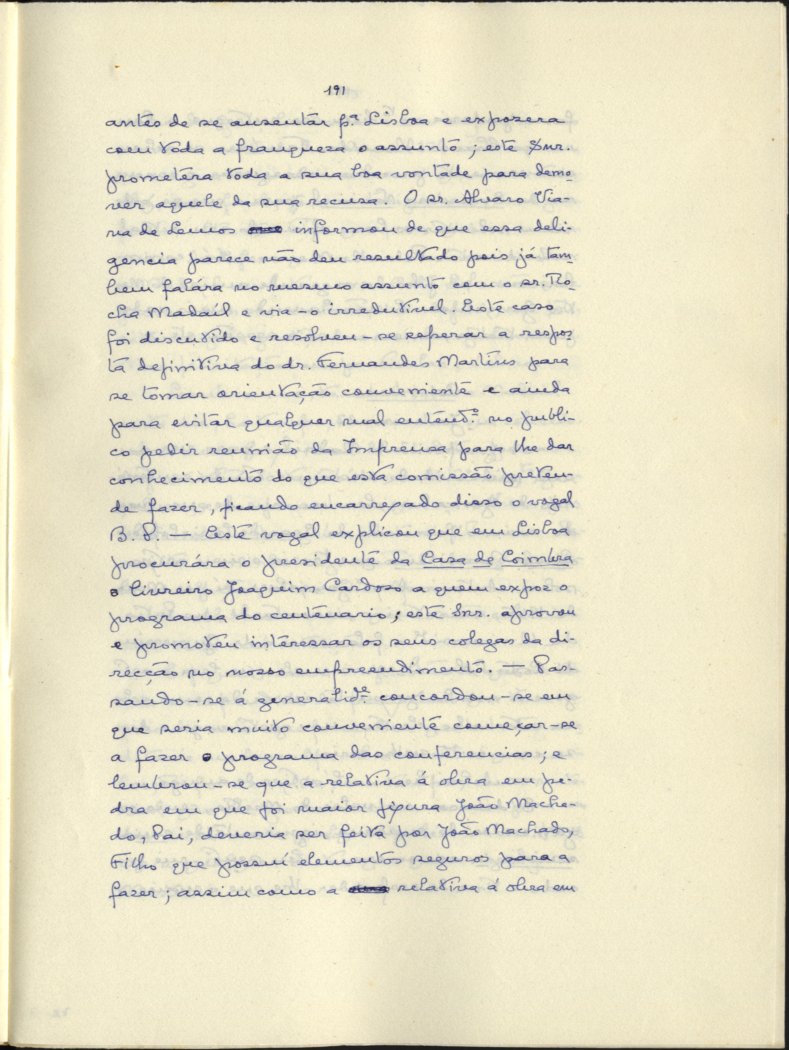 191
antes de se ausentar p.ª Lisboa e expozera
com toda a franqueza o assunto; este Snr.
prometera toda a sua boa vontade para demo-
ver aquele da sua recusa. O sr. Alvaro Via-
na de Lemos informou de que essa deli-
gencia parece não deu resultado pois já tam-
bem falára no mesmo assunto com o sr. Ro-
cha Madaíl e via-o irredutivel. Este caso
foi discutido e resolveu-se esperar a respos-
ta definitiva do dr. Fernandes Martins para
se tomar orientação conveniente e ainda
para evitar qualquer mal entend.º no publi-
co pedir reunião da Imprensa para lhe dar
conhecimento do que esta comissão preten-
de fazer, ficando encarregado disso o vogal
B. P. — Este vogal explicou que em Lisboa
procurára o presidente da Casa de Coimbra
o livreiro Joaquim Cardoso a quem expoz o
programa do centenario; este Snr. aprovou
e prometeu interessar os seus colegas da di-
recção no nosso empreendimento. — Pas-
sando-se á generalid.e concordou-se em
que seria muito conveniente começar-se
a fazer o programa das conferencias; e
lembrou-se que a relativa á obra em pe-
dra em que foi maior figura João Macha-
do, Pai, deveria ser feita por João Machado,
Filho que possuí elementos seguros para a
fazer; assim como a relativa á obra em